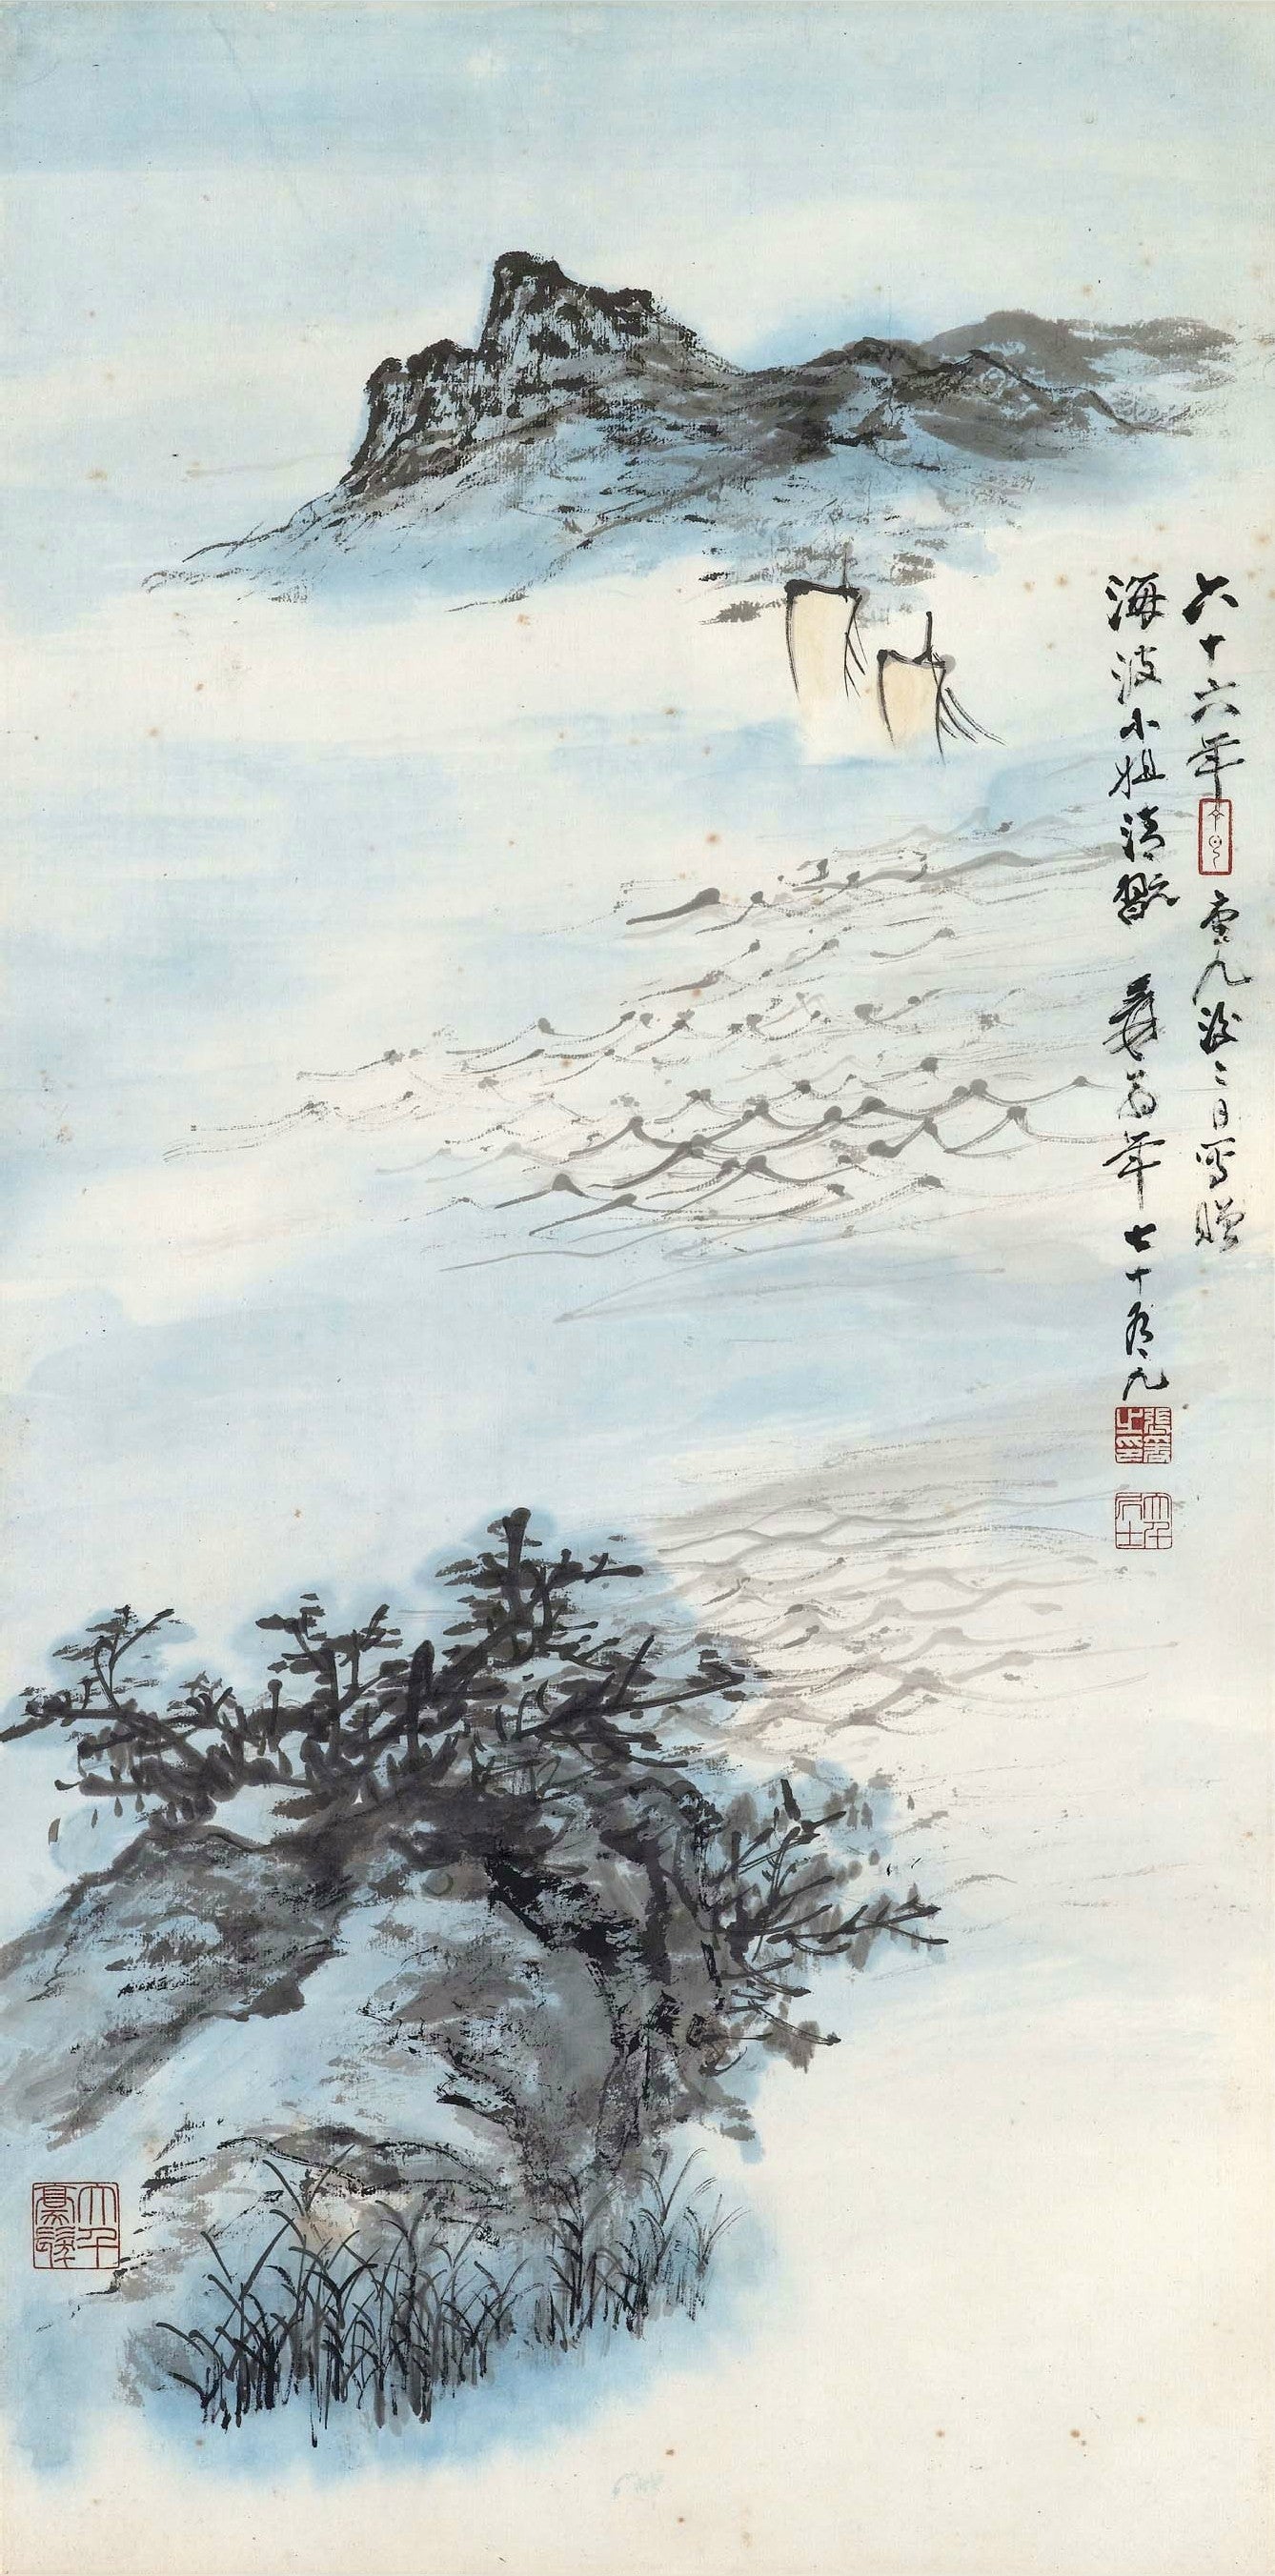 六十六年丁巳重九後二日寫贈
海波小姐清翫 爰翁年七十有九
張爰之印
大千居士
大千豪髮